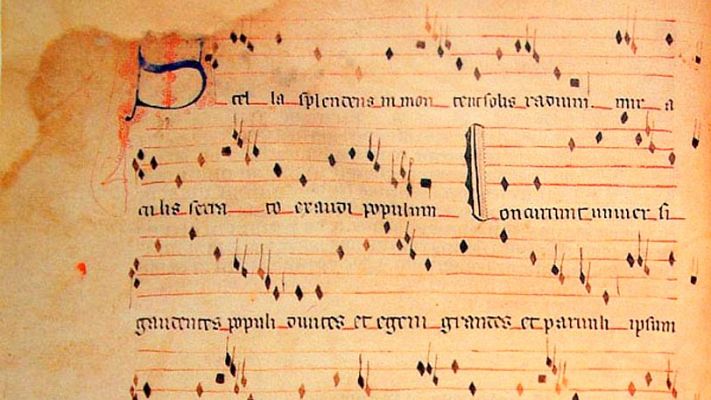 Stel la splendens in mon te ut solis radium. mir a
culis serra to exaudi populum Concurrunt uniuer si
gaudentes populi diuites et egeni grandes et paruuli ipsum